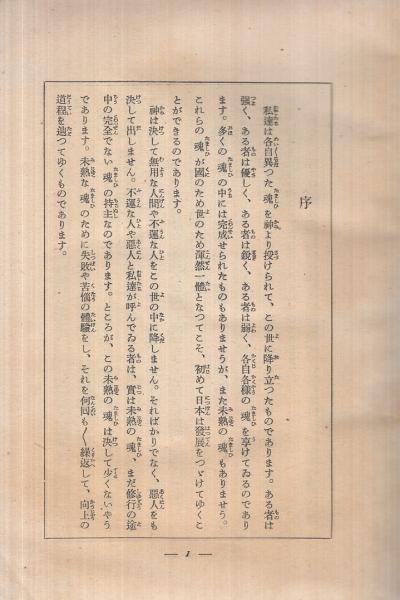 序
私達は各自異つた魂を神より授けられて、この世に降り立つたものであります。ある者は
强く、ある者は優しく、ある者は銳く、ある者は弱く、各自各様の魂を享けてゐるのであり
ます。多くの魂の中には完成せられたものもありませうが、また未熟の魂もありませう。
これらの魂が國のため世のため渾然一體となつてこそ、初めて日本は發展をつゞけてゆくこ
とができるのであります。
神は決して無用な人間や不運な人をこの世の中に降しません。そればかりでなく、惡人をも
決して出しません。不運な人や惡人と私達が呼んでゐる者は、實は未熟の魂、まだ修行の途
中の完全でない魂の持主なのであります。ところが、この未熟の魂は決して少くないやう
であります。未熟な魂のために失敗や苦惱の體驗をし、それを何回も〳〵繰返して、向上の
道程を辿つてゆくものであります。
— 1 —